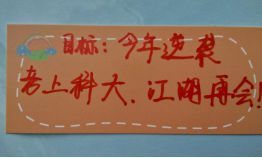 目标：今年逆袭
考上科大、江湖再会！